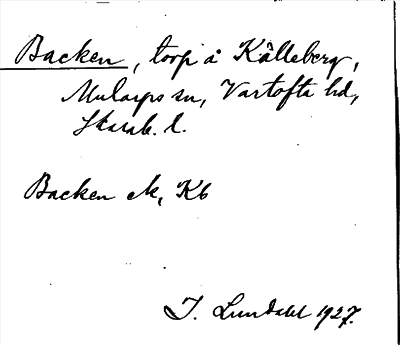 Backen, torp å Källeberg,
Mularps sn, Vartofta hd,
Skarab. l.
Backen ek, Kb
J. Lundahl 1927.